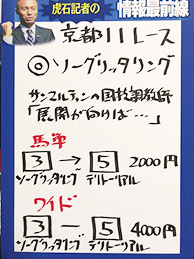 虎石記者の
情報最前線
京都11レース
◎ソーグリッタリング
サンエルティンの国枝調教師
「展開が向けば…」
馬単
3 → 5 2000円
ソーグリッタリング デリトーリアル
ワイド
3 − 5 4000円
ソーグリッタリング デリトーリアル